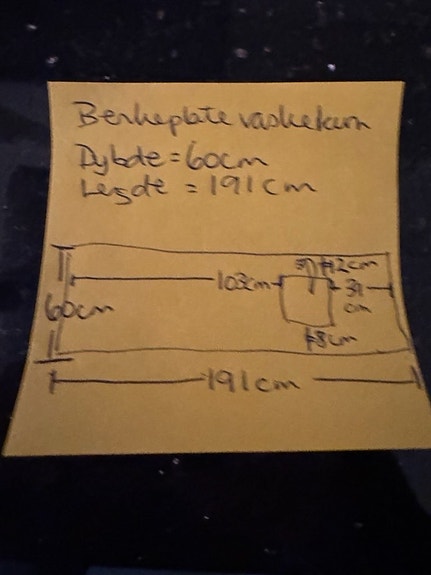 Benkeplate vaskekum
Dybde = 60cm
Legde = 191cm
12cm
103cm
31
60cm
cm
8cm
191cm